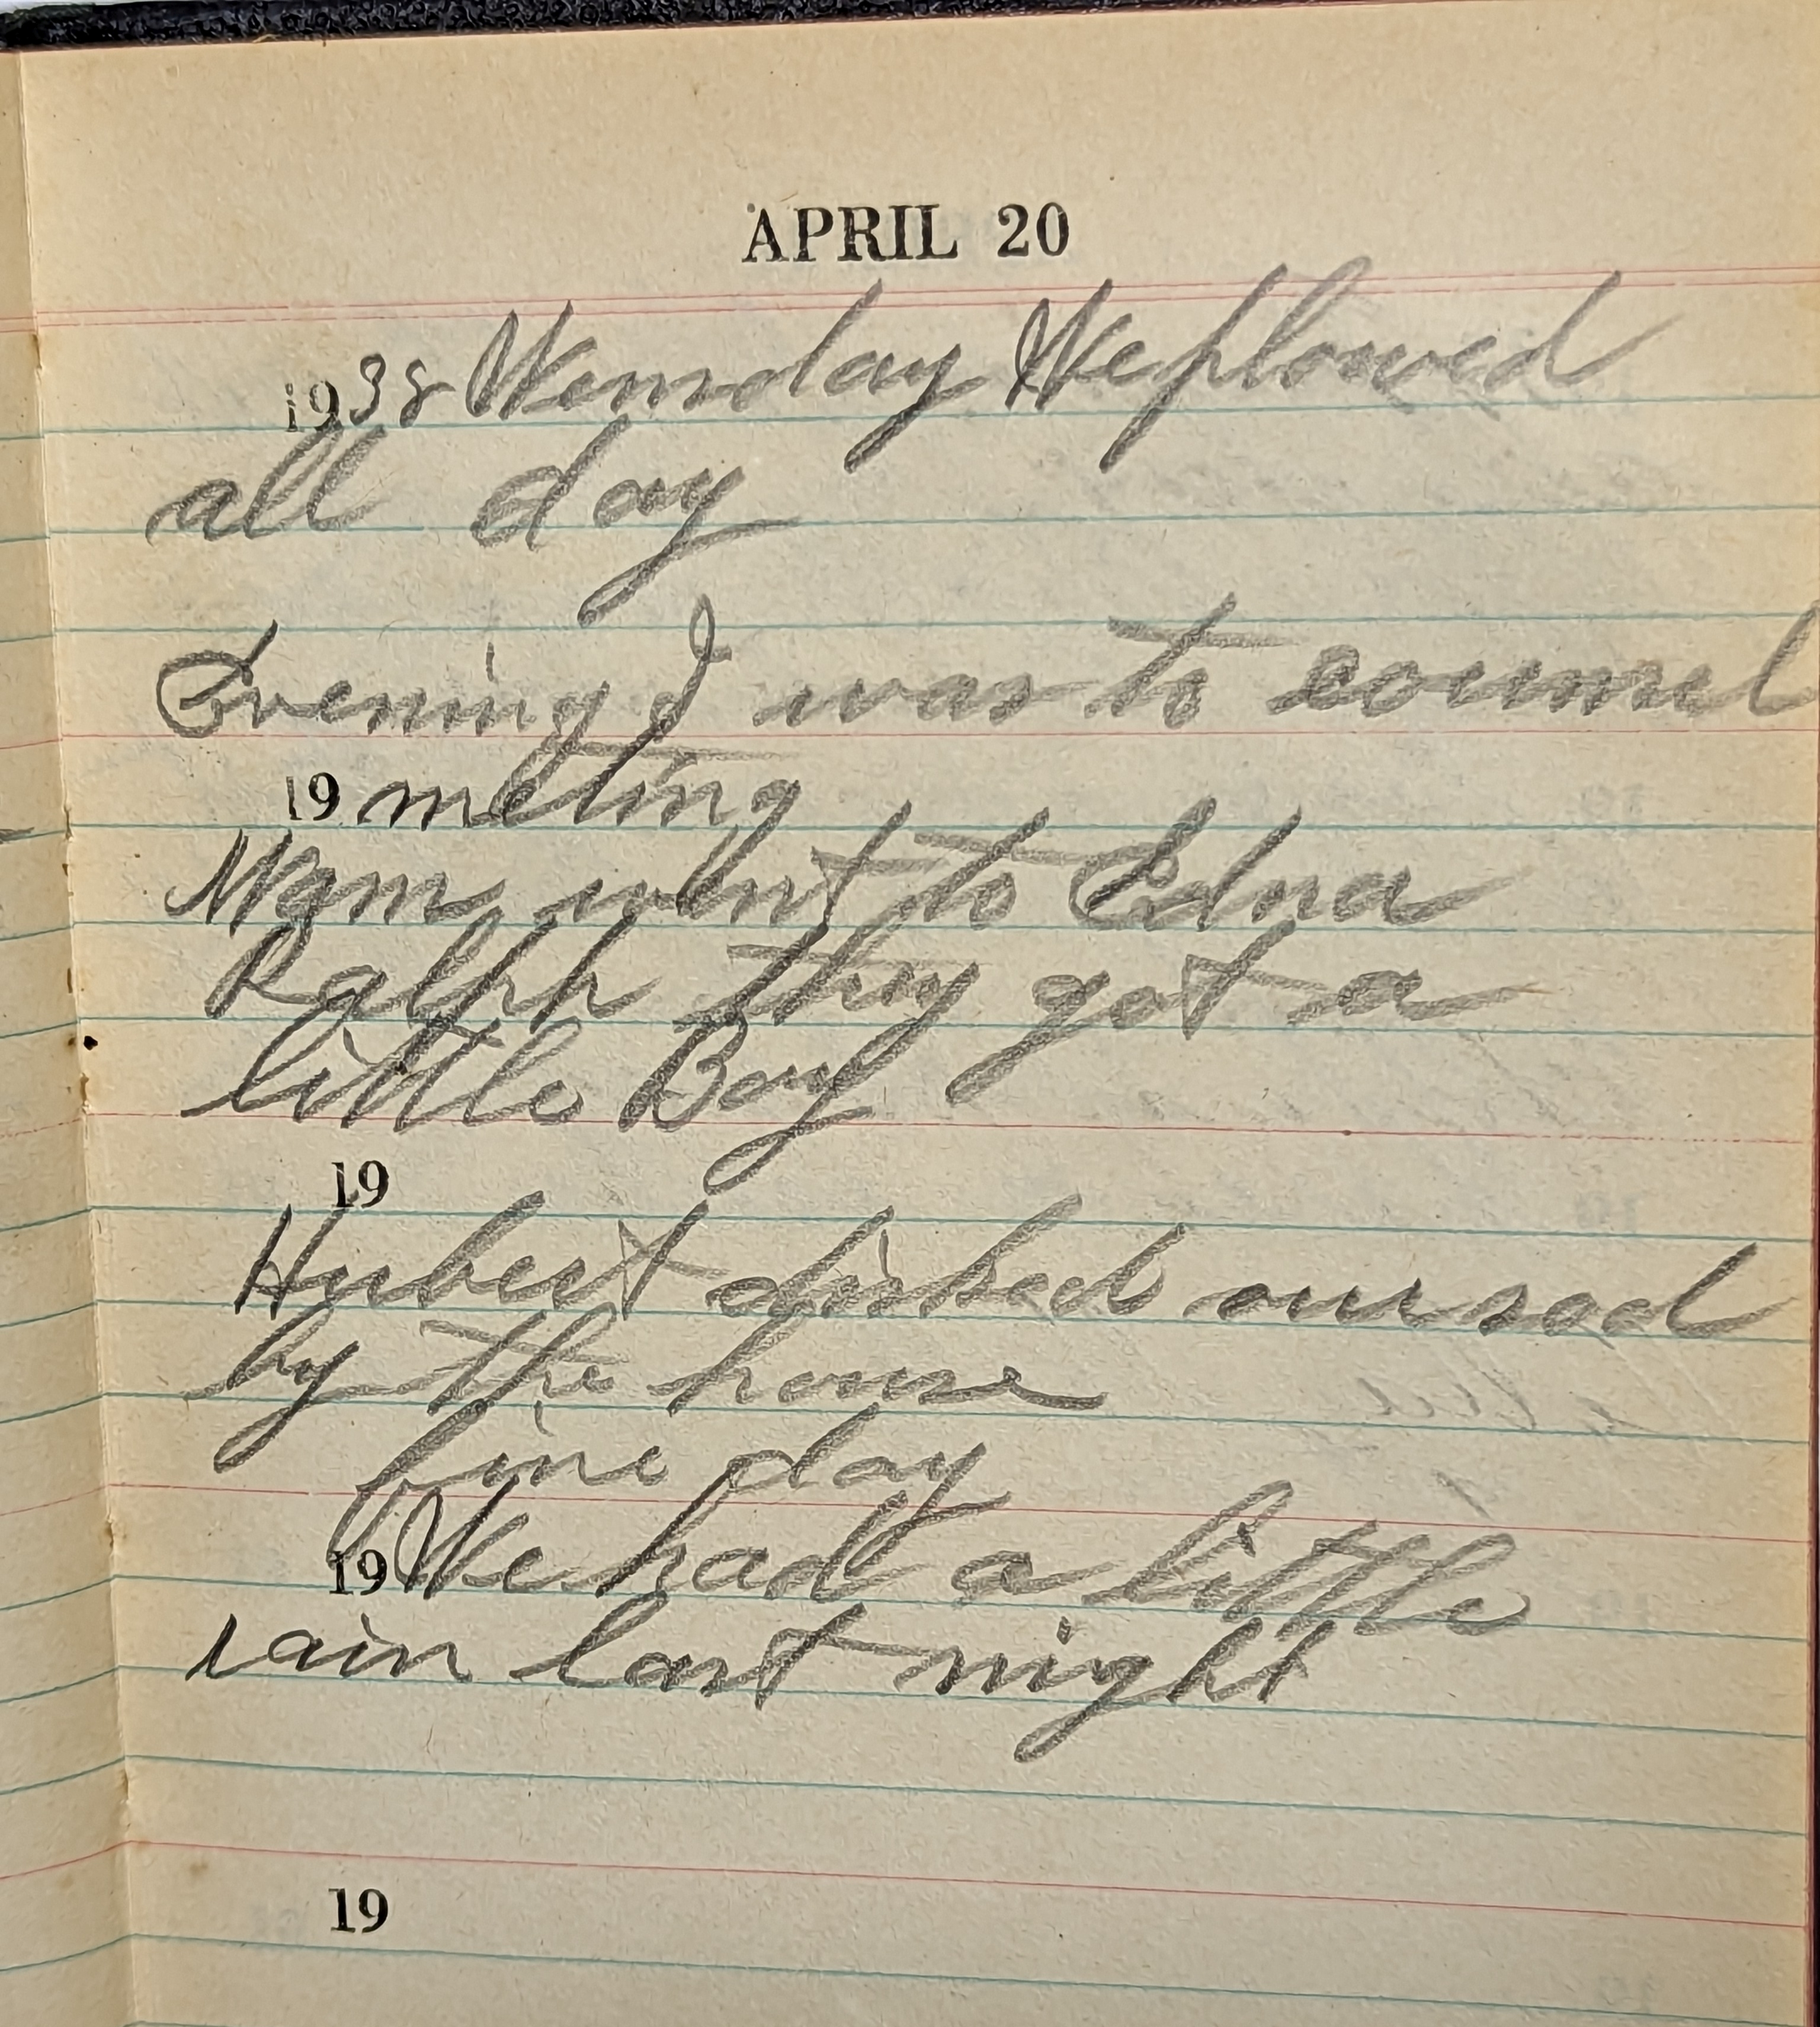 APRIL 20
1938 Wensday We plowed
all day
Evening I was to counsel
19 meting
Mam went to Edna
Ralph they got a
little Boy
19
Hubert disked our sod
by the house
fine day
19 We had a little
rain last night
19